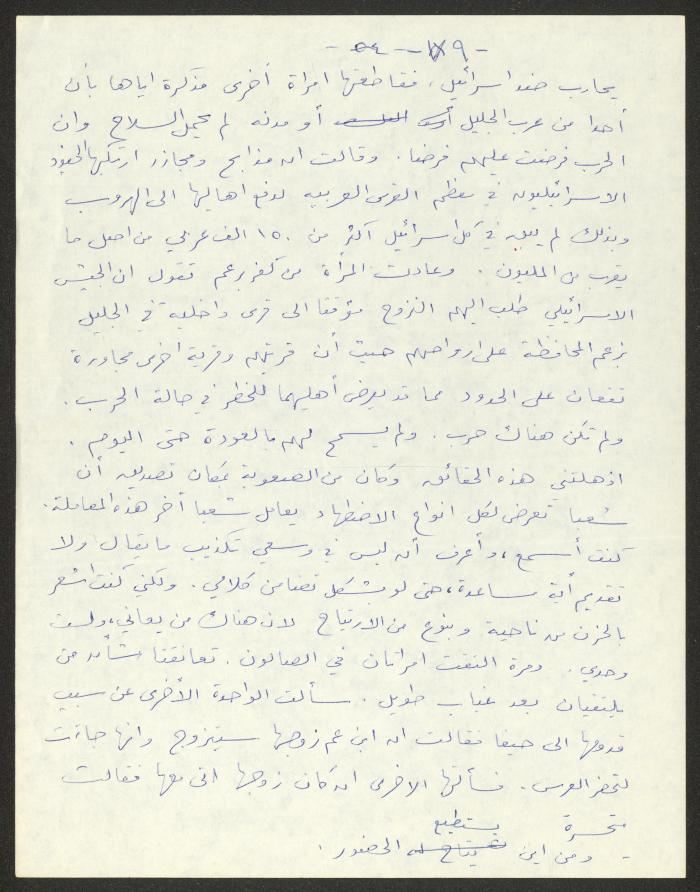 - ٩ -
يحارب ضد اسرائيل، فقاطعتها امرأة أخرى مذكرة اياها بأن
أحدا من عرب الجليل أو مدنه لم يحمل السلاح وان
الحرب فرضت عليهم فرضا. وقالت ان مذابح ومجازر ارتكبها الجنود
الاسرائيليون في معظم القرى العربية لدفع اهاليها الى الهروب
وبذلك لم يبق في كل اسرائيل أكثر من ١٥٠ الف عربي من اصل ما
يقرب من المليون. وعادت المرأة من كفر برعم تقول ان الجيش
الاسرائيلي طلب اليهم النزوح مؤقتا الى قرى داخلية في الجليل
بزعم المحافظة على ارواحهم حيث أن قريتهم وقرية اخرى مجاورة
تقعان على الحدود مما قد يعرض أهليهما للخطر في حالة الحرب.
ولم تكن هناك حرب. ولم يسمح لهم بالعودة حتى اليوم.
اذهلتني هذه الحقائق وكان من الصعوبة بمكان تصديق أن
شعبا تعرض لكل انواع الاضطهاد يعامل شعبا أخر هذه المعاملة.
كنت أسمع، وأعرف أنه ليس في وسعي تكذيب ما يقال ولا
تقديم أية مساعدة، حتى لو بشكل تضامن كلامي. ولكني كنت اشعر
بالحزن من ناحية وبنوع من الارتياح لان هناك من يعاني، ولست
وحدي. ومرة التقت امرأتان في الصالون. تعانقتا شأن من
يلتقيان بعد غياب طويل. سألت الواحدة الأخرى عن سبب
قدومها الى حيفا فقالت ان ابن عم زوجها سيتزوج وانها جاءت
لتحضر العرس. فسألتها الاخرى ان كان زوجها اتى معها فقالت
متحسرة
ومن اين يستطيع الحضور.